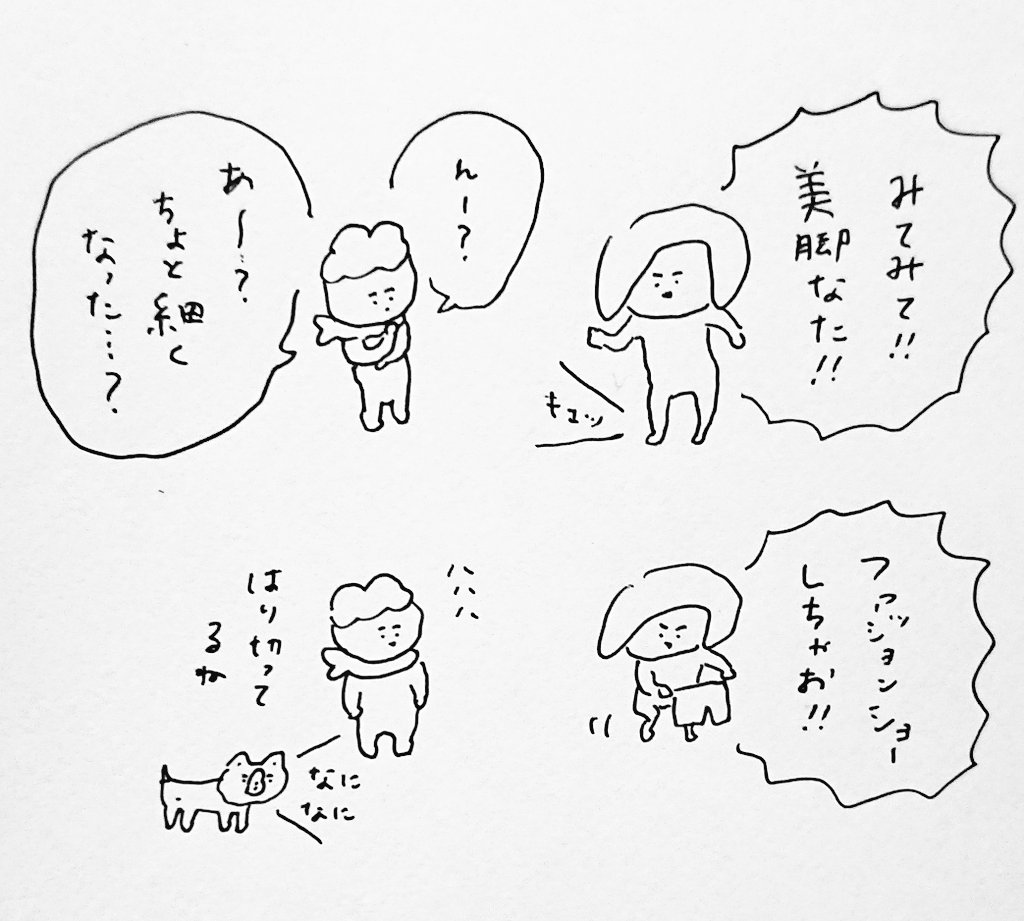 みてみて!!
美脚なた!!
キュッ
んー?
あ〜…?
ちょと細く
なった……?
ファッションショー
しちゃお!!
ハハハ
はり切って
るね
なに
なに